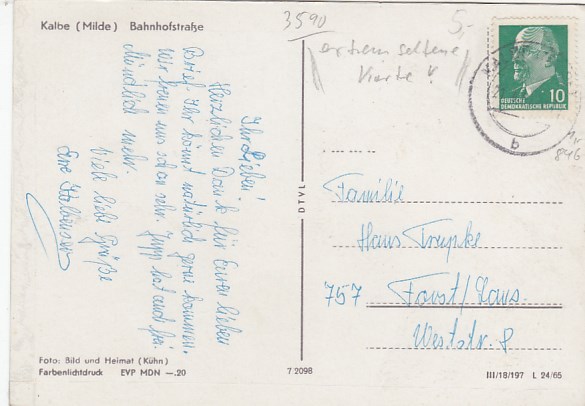 Kalbe (Milde) Bahnhofstraße
3590
5,-
extrem seltene
Karte !
DEUTSCHE
DEMOKRATISCHE REPUBLIK
10
b
846
Ihr Lieben!
Herzlichen Dank für Euren lieben
Brief. Ihr könnt natürlich gerne kommen.
Wir freuen uns schon sehr. Jupp hat auch frei.
Mündlich mehr.
Viele liebe Grüße
Eure
DTVL
Familie
Hans
757 Forst/Laus.
Weststr. 8
Foto: Bild und Heimat (Kühn)
Farbenlichtdruck EVP MDN —.20
7 2098
III/18/197 L 24/65